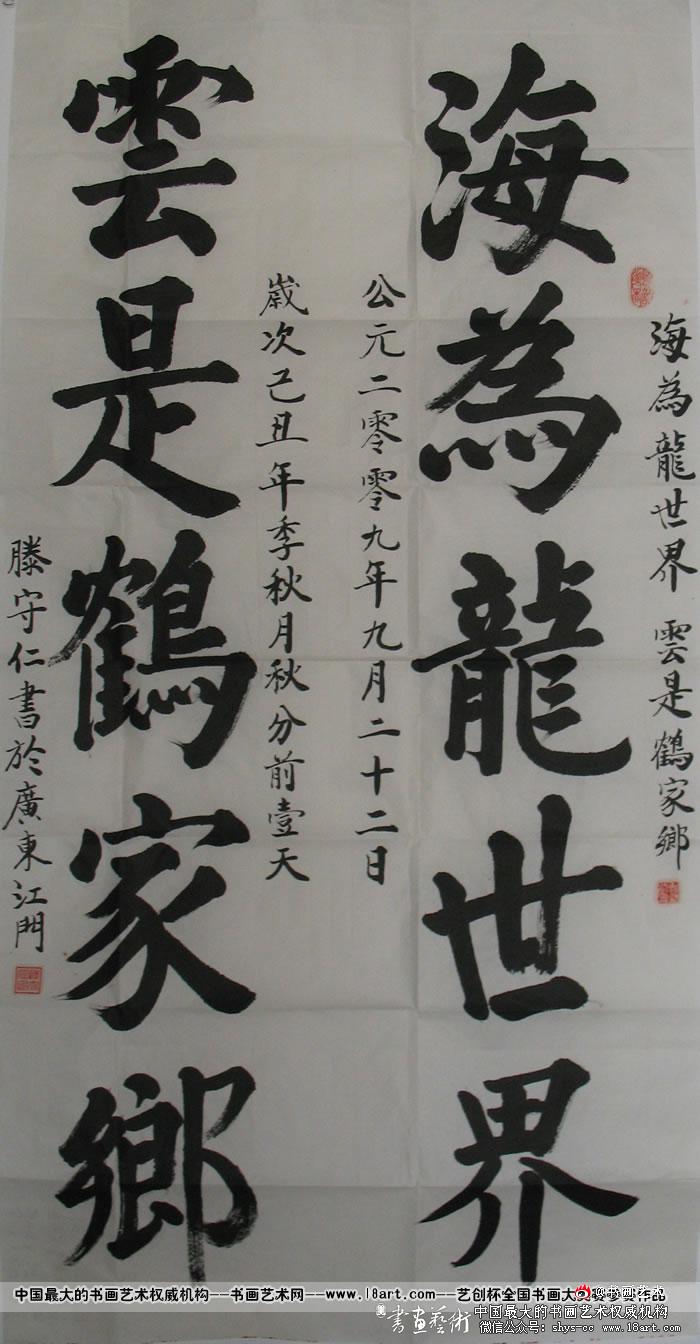 海為龍世界 雲是鶴家鄉
海為龍世界
公元二零零九年九月二十二日
歲次己丑年季秋月秋分前壹天
雲是鶴家鄉
滕守仁書於廣東江門
中国最大的书画艺术权威机构——书画艺术网——www.18art.com——艺创杯全国书画大赛参赛作品
@书画艺术
書畫藝術 中国最大的书画艺术权威机构
微信公众号: shys-cc www.18art.com